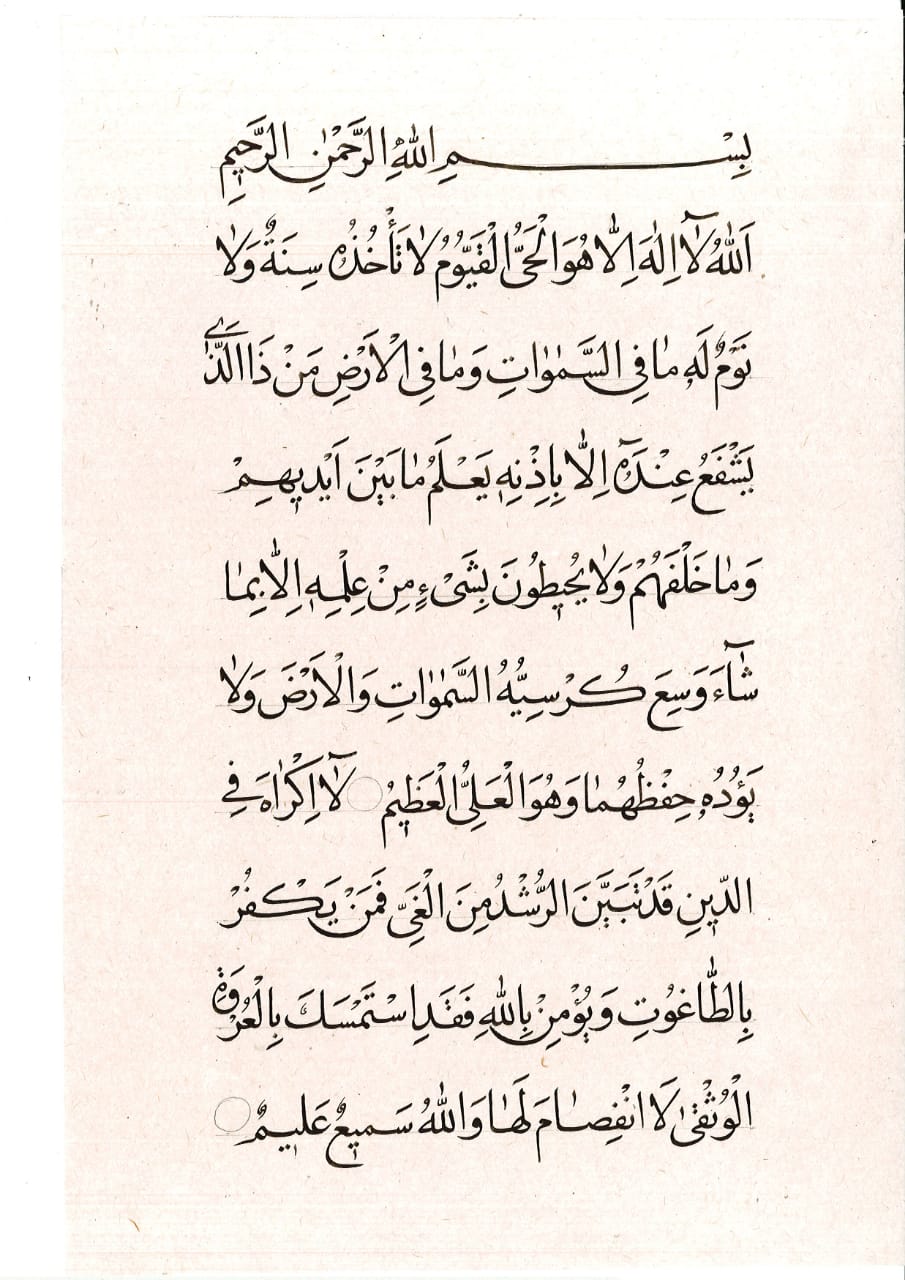 بِسْمِ اللّٰهِ الرَّحْمٰنِ الرَّحِيمِ
اَللّٰهُ لَآ اِلٰهَ اِلَّا هُوَ الْحَىُّ الْقَيُّومُ لَا تَأْخُذُهُ سِنَةٌ وَلَا
نَوْمٌ لَهُ مَا فِى السَّمٰوَاتِ وَمَا فِى الْاَرْضِ مَنْ ذَا الَّذٖى
يَشْفَعُ عِنْدَهُٓ اِلَّا بِاِذْنِهٖ يَعْلَمُ مَا بَيْنَ اَيْدٖيهِمْ
وَمَا خَلْفَهُمْ وَلَا يُحٖيطُونَ بِشَىْءٍ مِنْ عِلْمِهٖ اِلَّا بِمَا
شَٓاءَ وَسِعَ كُرْسِيُّهُ السَّمٰوَاتِ وَالْاَرْضَ وَلَا
يَؤُدُهُ حِفْظُهُمَا وَهُوَ الْعَلِىُّ الْعَظٖيمُ ۝ لَٓا اِكْرَاهَ فِى
الدّٖينِ قَدْ تَبَيَّنَ الرُّشْدُ مِنَ الْغَىِّ فَمَنْ يَكْفُرْ
بِالطَّاغُوتِ وَيُؤْمِنْ بِاللّٰهِ فَقَدِ اسْتَمْسَكَ بِالْعُرْوَةِ
الْوُثْقٰى لَا انْفِصَامَ لَهَا وَاللّٰهُ سَمٖيعٌ عَلٖيمٌ ۝